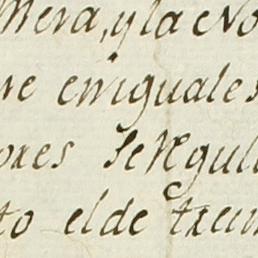 Mera, y la No
re en iguales
ores se Regul
to el de trein